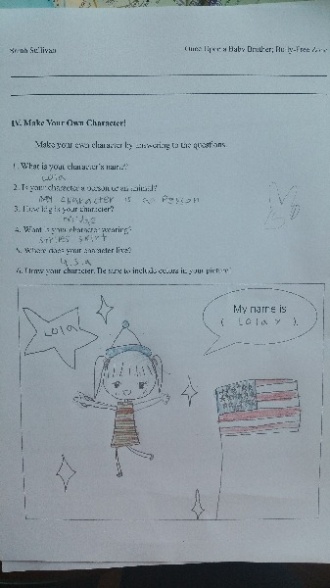 Sarah Sullivan Once Upon a Baby Brother; Bully-Free Zone
IV. Make Your Own Character!
Make your own character by answering to the questions.
1. What is your character's name?
Lola
2. Is your character a person or an animal?
My character is a person
3. How big is your character?
4. What is your character wearing?
stripes skirt
5. Where does your character live?
U.S.A
6. Draw your character. Be sure to include colors in your picture.
Lola
My name is
( Lola )